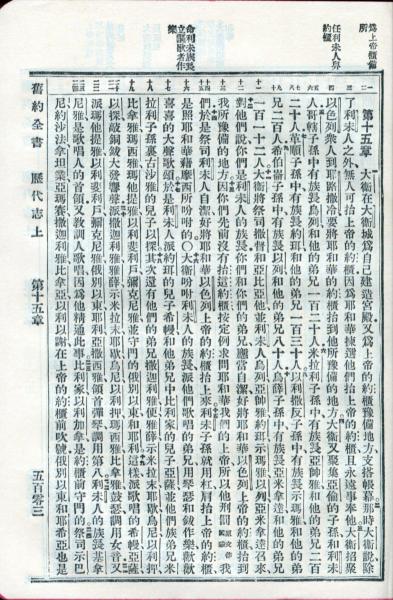 爲上帝櫃備所
任利未人舁約櫃
命利未族長立謳歌者作樂
第十五章 大衛在大衛城爲自己建造宮殿又爲上帝的約櫃豫備地方支搭帳幕那時大衛說除
了利未人之外無人可抬上帝的約櫃因爲耶和華揀選他們抬上帝的約櫃且永遠事奉他大衛招聚
以色列衆人到耶路撒冷要將耶和華的約櫃抬到他所豫備的地方大衛又聚集亞倫的子孫和利未
人哥轄子孫中有族長烏列和他的弟兄一百二十人米拉利子孫中有族長亞帥雅和他的弟兄二百
二十人革順子孫中有族長約珥和他的弟兄一百三十人以利撒反子孫中有族長示瑪雅和他的弟兄
二百人希伯崙子孫中有族長以列和他的弟兄八十人烏薛子孫中有族長亞米拿達和他的弟兄
一百一十二人大衛將祭司撒督和亞比亞他並利未人烏列亞帥雅約珥示瑪雅以列亞米拿達召來
對他們說你們是利未人的族長你們和你們的弟兄應當自潔好將耶和華以色列上帝的約櫃抬到
我所豫備的地方因你們先前沒有抬這約櫃按定例求問耶和華我們的上帝所以他刑罰我
們於是祭司利未人自潔好將耶和華以色列上帝的約櫃抬上來利未子孫就用杠肩抬上帝的約櫃
是照耶和華藉摩西所吩咐的○大衛吩咐利未人的族長派他們歌唱的弟兄用琴瑟和鈸作樂歡歡
喜喜的大聲歌頌於是利未人派約珥的兒子希幔和他弟兄中比利家的兒子亞薩並他們族弟兄米
拉利子孫裏古沙雅的兒子以探其次還有他們的弟兄撒迦利雅便雅薛示米拉末耶歇烏尼以利押
比拿雅瑪西雅瑪他提雅以利斐利戶彌克尼雅並守門的俄別以東和耶利這樣派歌唱的希幔亞薩
以探敲銅鈸大發響聲派撒迦利雅雅薛示米拉末耶歇烏尼以利押瑪西雅比拿雅鼓瑟調用女音又
派瑪他提雅以利斐利戶彌克尼雅俄別以東耶利亞撒西雅領首彈琴調用第八利未人的族長基拿
尼雅是歌唱人的首領又教訓人歌唱因爲他精通此事比利家以利加拿是約櫃前守門的祭司示巴
尼約沙法拿坦業亞瑪賽撒迦利雅比拿亞以利以謝在上帝的約櫃前吹號俄別以東和耶希亞也是
舊約全書 歷代志上 第十五章 五百零三